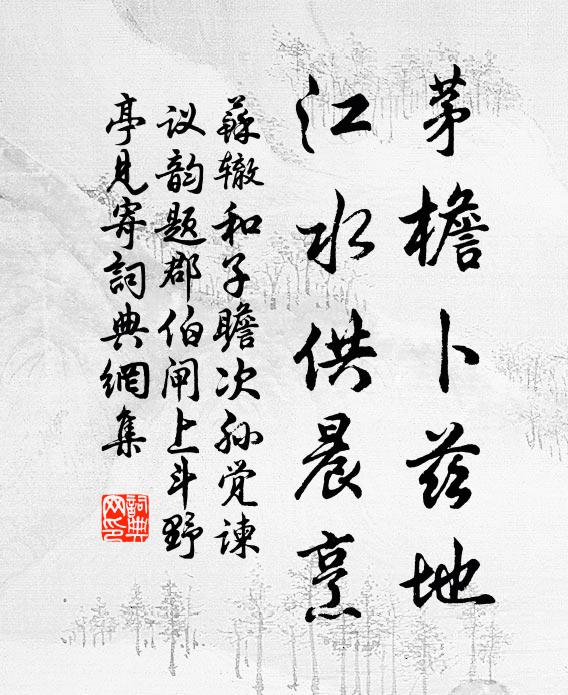 茅檐卜兹地
江水供晨烹
蘇辙和子瞻次孙觉谏
议韵题郡伯闸上斗野
亭見寄詞典網集
詞典
网印